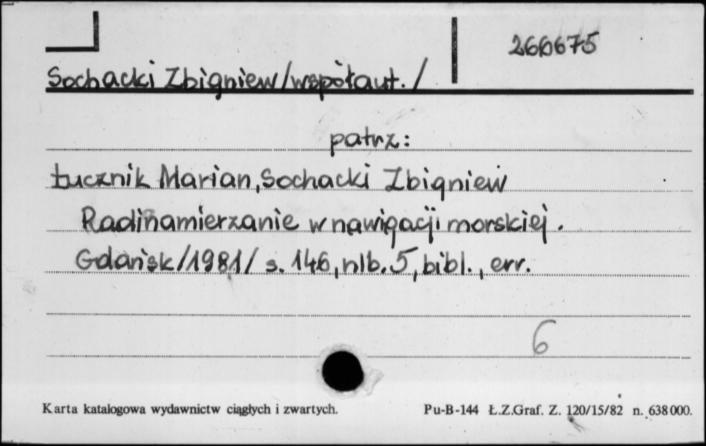 266675
Sochacki Zbigniew/współaut./
patrz:
Łucznik Marian, Sochacki Zbigniew
Radinamierzanie w nawigacji morskiej.
Gdańsk/1981/ s. 146, nlb. 5, bibl., err.
6
Karta katalogowa wydawnictw ciągłych i zwartych. Pu-B-144 Ł.Z.Graf. Z. 120/15/82 n. 638000.